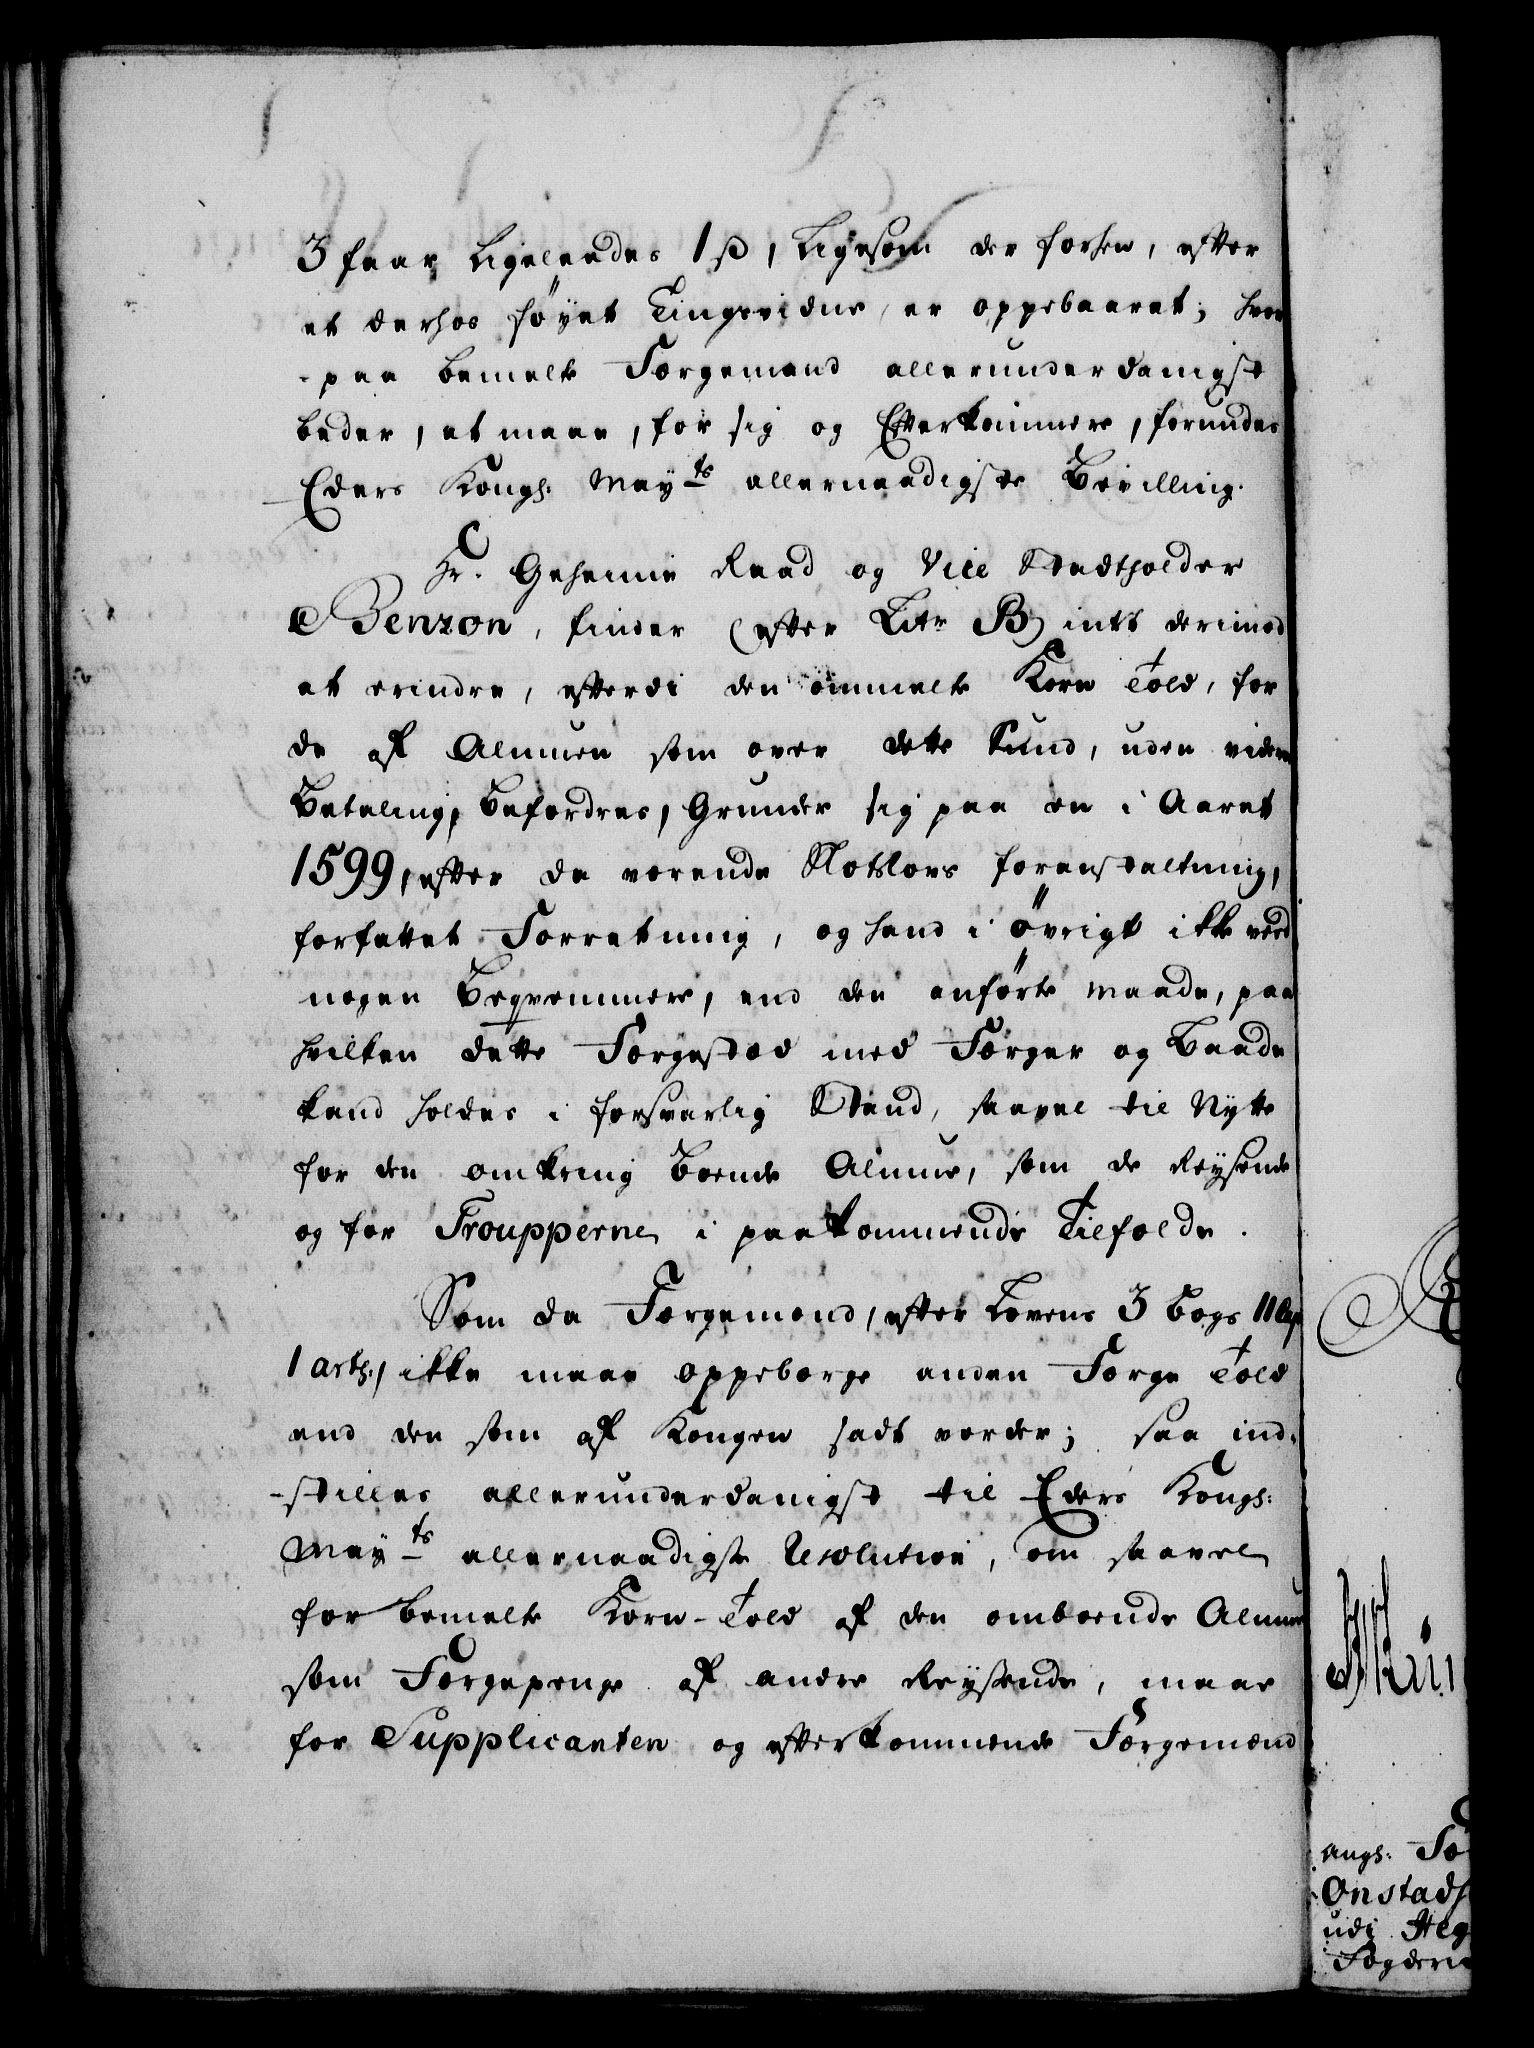 3 faar ligeleedes 1 ß, ligesom der forhen, efter
et derhos føyet Tingsvidne, er oppebaaret; hvor
-paa bemelte Færgemand allerunderdanigst
beder, at maae, for sig og Efterkommere, forundes
Eders Kongl: May<sup>ts</sup> allernaadigste Bevilling.
Hr. Geheime Raad og Vice Stadtholder
Benzon, finder (efter Litr B) intet derimod
at erindre, efterdi den ommelte Korn Told, for
de af Almuen som over dette Sund, uden videre
Betaling, befordres, Grunder sig paa en i Aaret
1599, efter da værende Slotslovs foranstaltning,
forfattet Forretning, og hand i øvrigt ikke veed
nogen Beqvemmere, end den anførte Maade, paa
hvilken dette Færgestæd med Færger og Baade
kand holdes i forsvarlig Stand, saavel til Nytte
for den omkring boende Almue, som de Reysende
og for Troupperne i paakommende Tilfælde.
Som da Færgemænd, efter Lovens 3 Bogs 11 Cap
1 artl:, ikke maae oppebærge anden Færge Told
end den som af Kongen sadt vorder; saa ind-
-stilles allerunderdanigst til Eders Kongl:
May<sup>ts</sup> allernaadigste Resolution, om saavel
for bemelte Korn-Told af den omboende Almue
som Færgepenge af andre Reysende, maae
for Supplicanten og efterkommende Færgemænd
angl: Fæ
Onstads
udi Heg
Fogderie